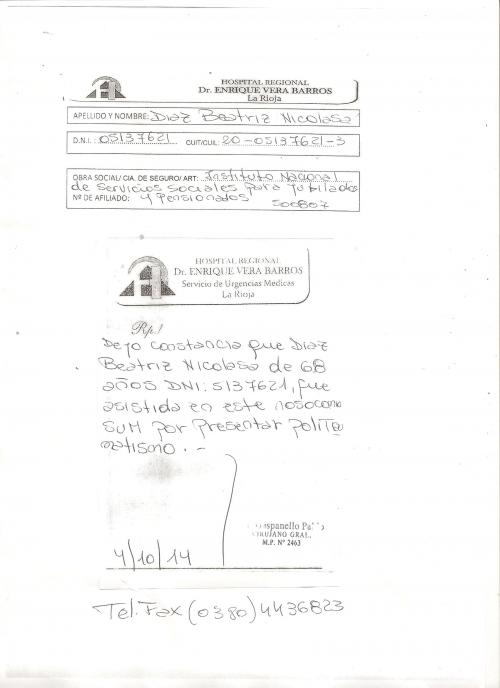 HOSPITAL REGIONAL
Dr. ENRIQUE VERA BARROS
La Rioja
APELLIDO Y NOMBRE: Diaz Beatriz Nicolasa
D.N.I.: 05137621 CUIT/CUIL: 20-05137621-3
OBRA SOCIAL/ CIA. DE SEGURO/ ART: Instituto Nacional
de Servicios Sociales para Jubilados
Nº DE AFILIADO: y Pensionados 500807
HOSPITAL REGIONAL
Dr. ENRIQUE VERA BARROS
Servicio de Urgencias Medicas
La Rioja
Rp./
Dejo constancia que Diaz
Beatriz Nicolasa de 68
años DNI: 5137621, fue
asistida en este nosocomio
SUM por presentar polit
matismo. -
4/10/14
CIRUJANO GRAL.
M.P. Nº 2463
Tel. Fax (0380) 4436823